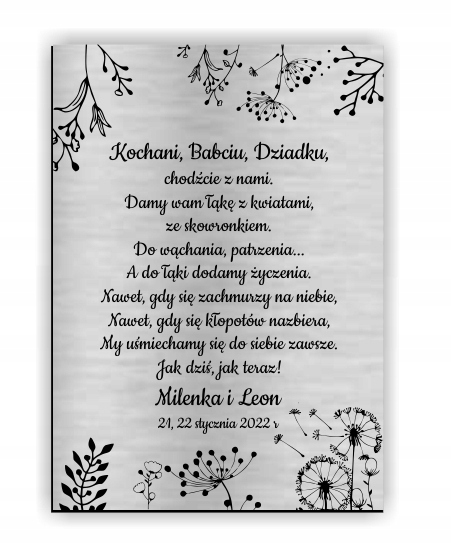 Kochani, Babciu, Dziadku,
chodźcie z nami.
Damy wam łąkę z kwiatami,
ze skowronkiem.
Do wąchania, patrzenia...
A do łąki dodamy życzenia.
Nawet, gdy się zachmurzy na niebie,
Nawet, gdy się kłopotów nazbiera,
My uśmiechamy się do siebie zawsze.
Jak dziś, jak teraz!
Milenka i Leon
21, 22 stycznia 2022 r